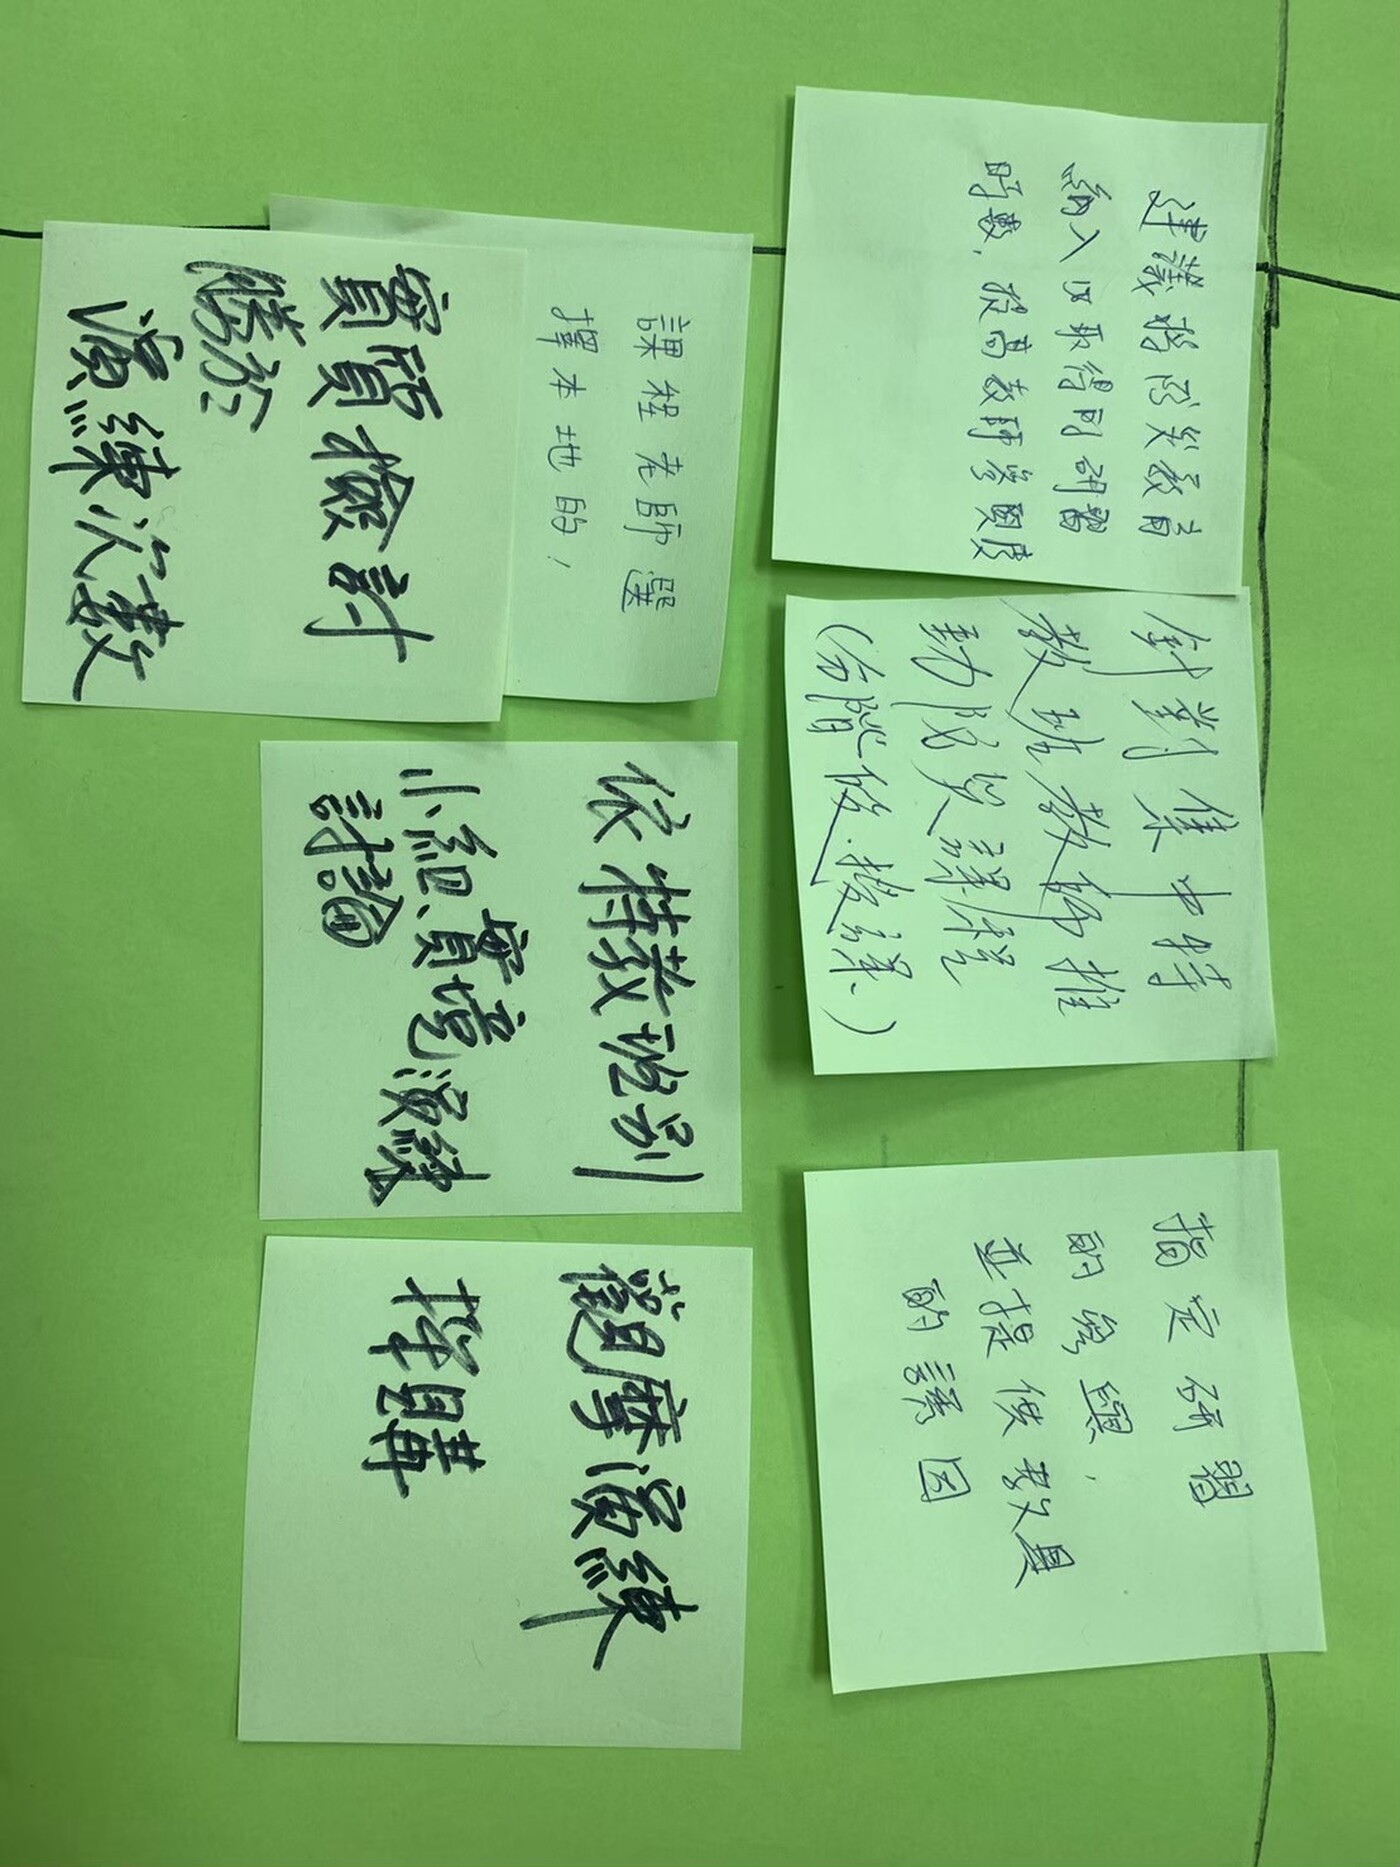 建議將防災教育
納入以取得同研習
時數，提高教師參與度
針對集中特
教班教師推
動防災課程
（分階段.授課.）
指定研習
的參與，
並提供教具
的誘因
課程老師選
擇本地的，
實質檢討
勝於
演練次數
依特教班別
小組、實境演練
討論
觀摩演練
採購